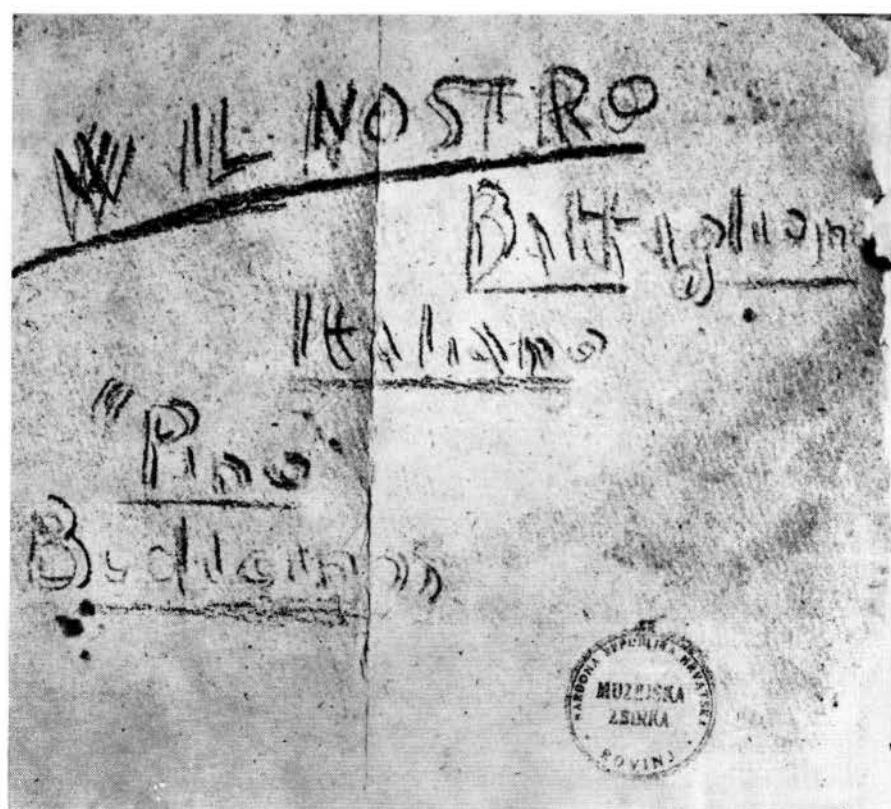 W IL NOSTRO
Battaglione
Italiano
"Pino
Budicin"
NARODNA REPUBLIKA HRVATSKA
MUZEJSKA
ZBIRKA
ROVINJ